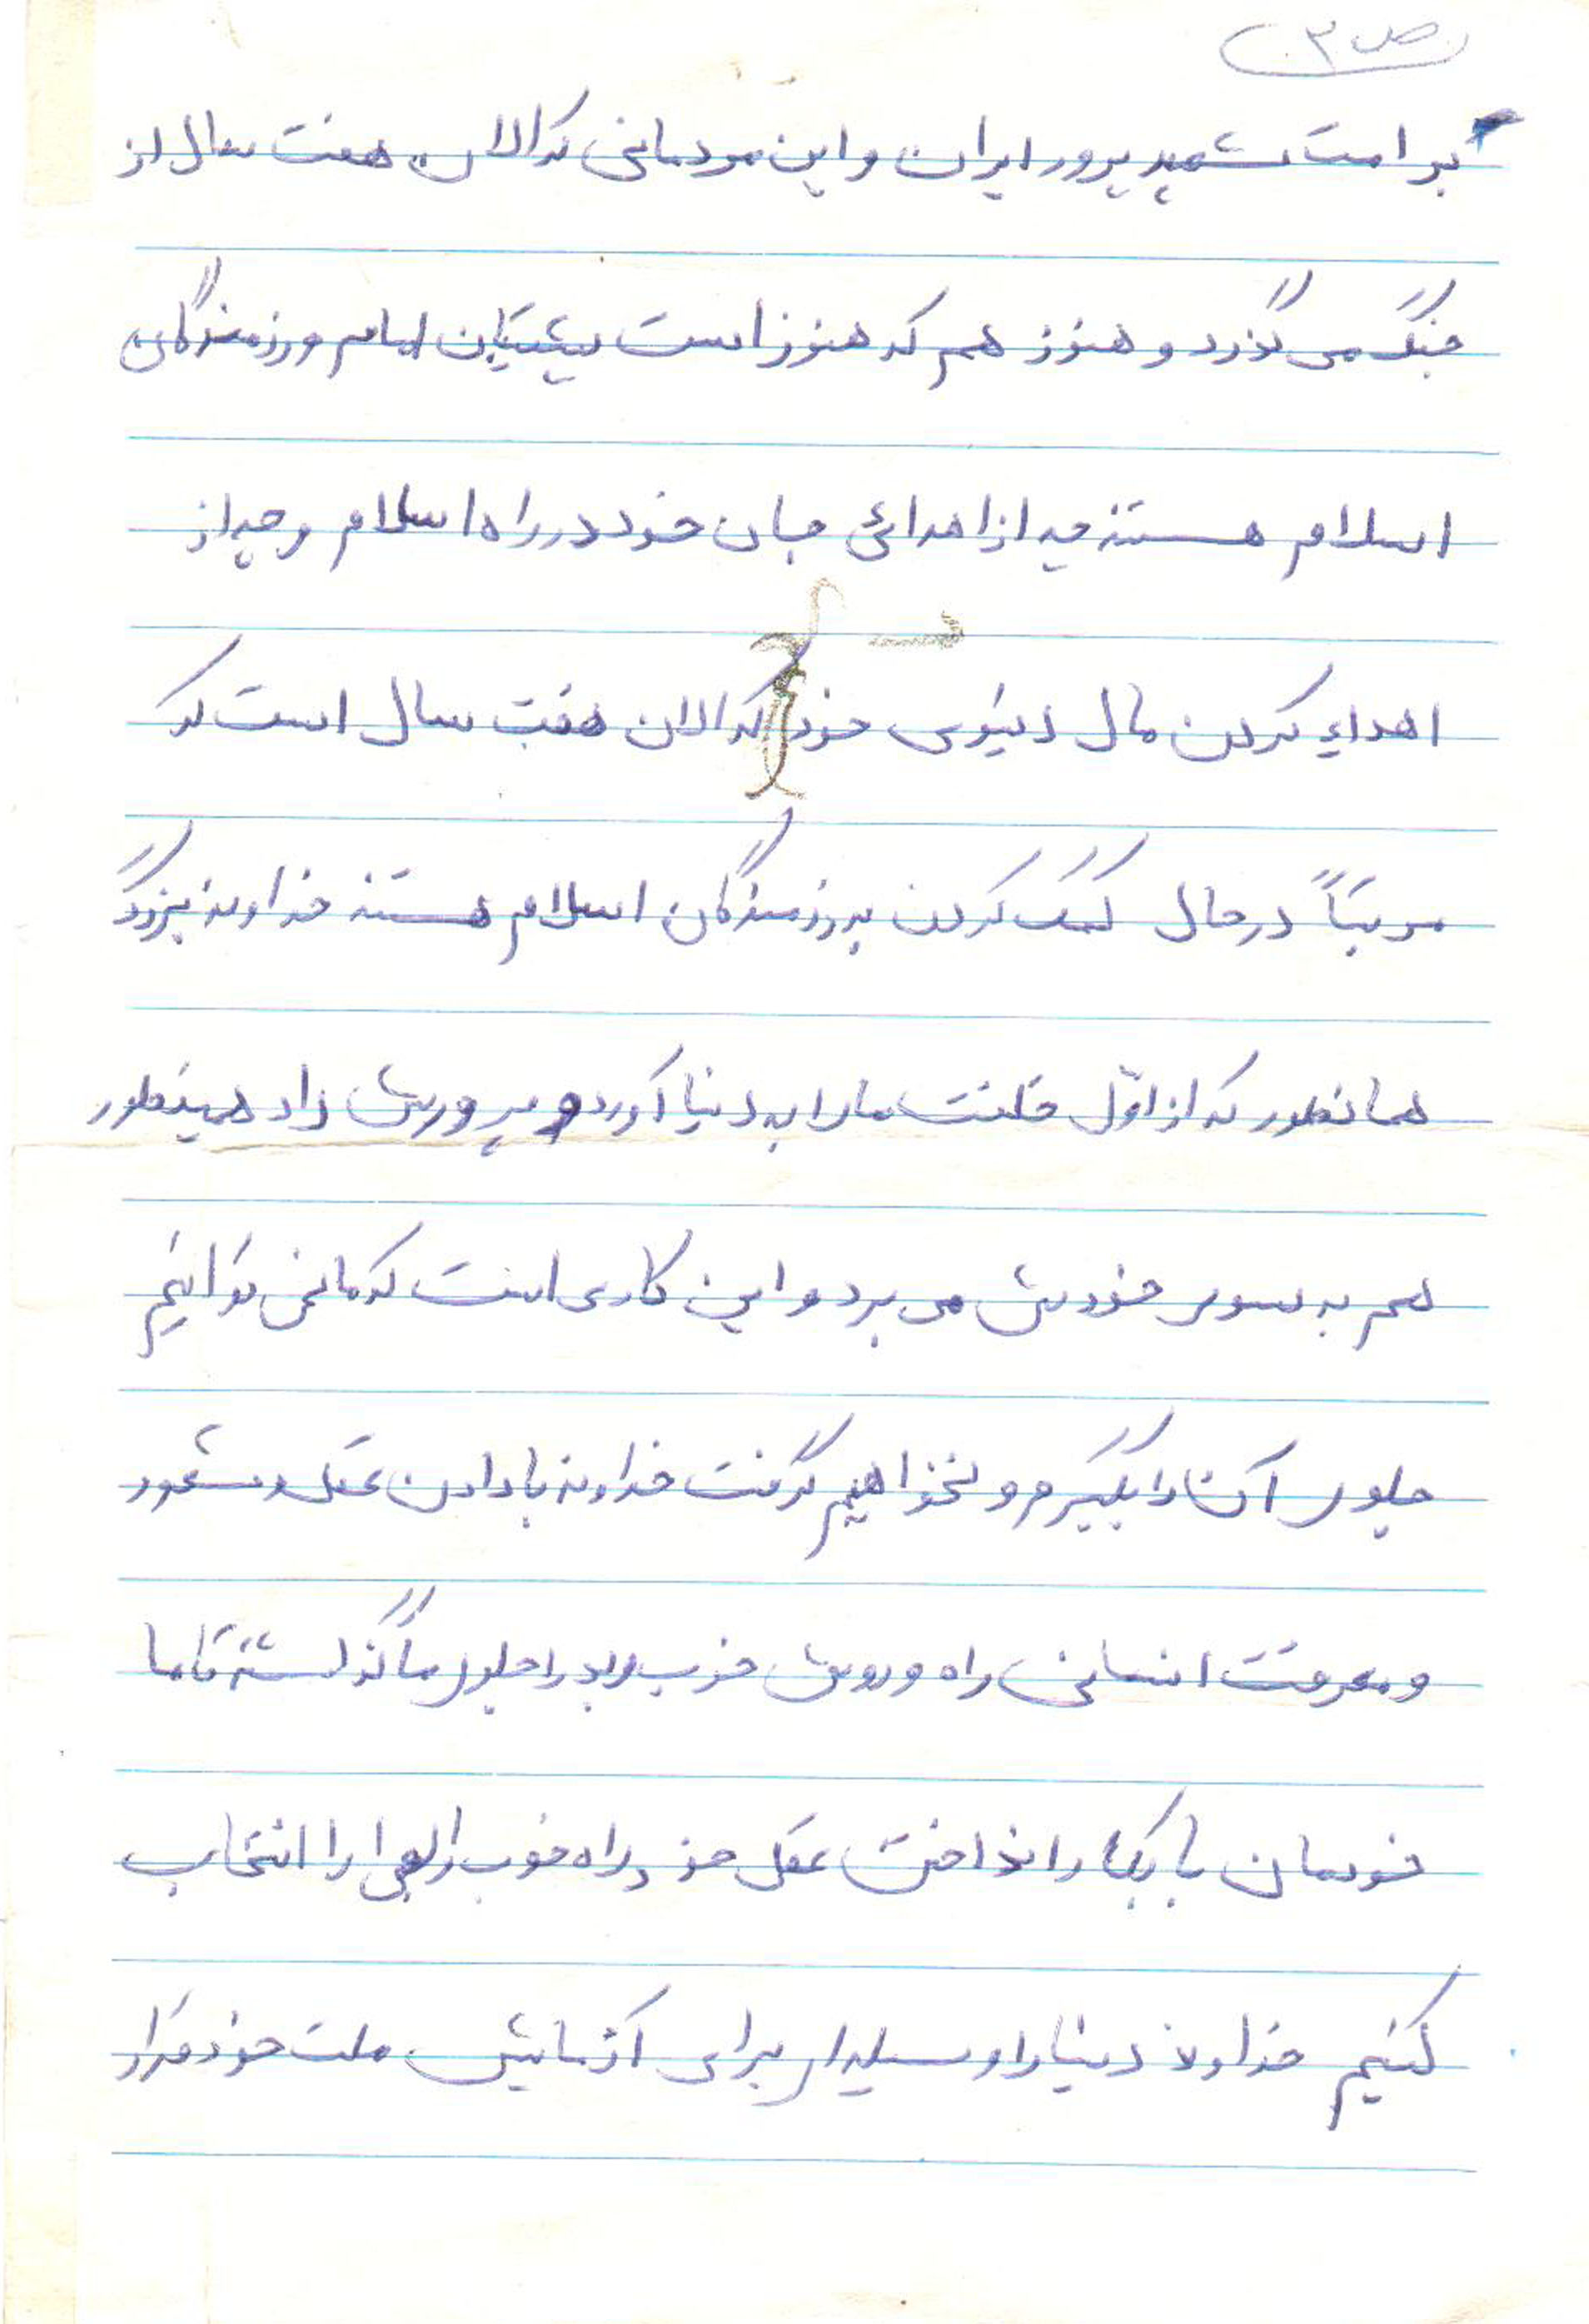 ص ۳
بر امت شهید پرور ایران و این مردمانی که الان هفت سال از
جنگ می گذرد و هنوز هم که هنوز است پشتیبان امام و رزمندگان
اسلام هستند چه از اهدائی جان خود در راه اسلام و چه از
اهداء کردن مال دنیوی خود که الان هفت سال است که
مرتباً در حال کمک کردن به رزمندگان اسلام هستند خداوند بزرگ
همانطور که از اوّل خلقت ما را به دنیا آورد و پرورش داد همینطور
هم به سوی خودش می برد و این کاری است که ما نمی توانیم
جلوی آن را بگیریم و نخواهیم گرفت خداوند با دادن عقل و شعور
و معرفت انسانی راه و روش خوب و بد را جلوی ما گذاشته تا ما
خودمان با بکار انداختن عقل خود راه خوب را انتخاب
کنیم خداوند دنیا را وسیله ای برای آزمایش ملت خود قرار